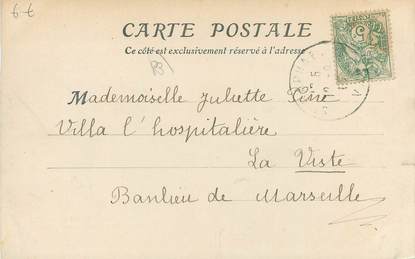 6-6
CARTE POSTALE
Ce côté est exclusivement réservé à l'adresse
Mademoiselle Juliette
Villa l'hospitalière
La Viste
Banlieu de Marseille